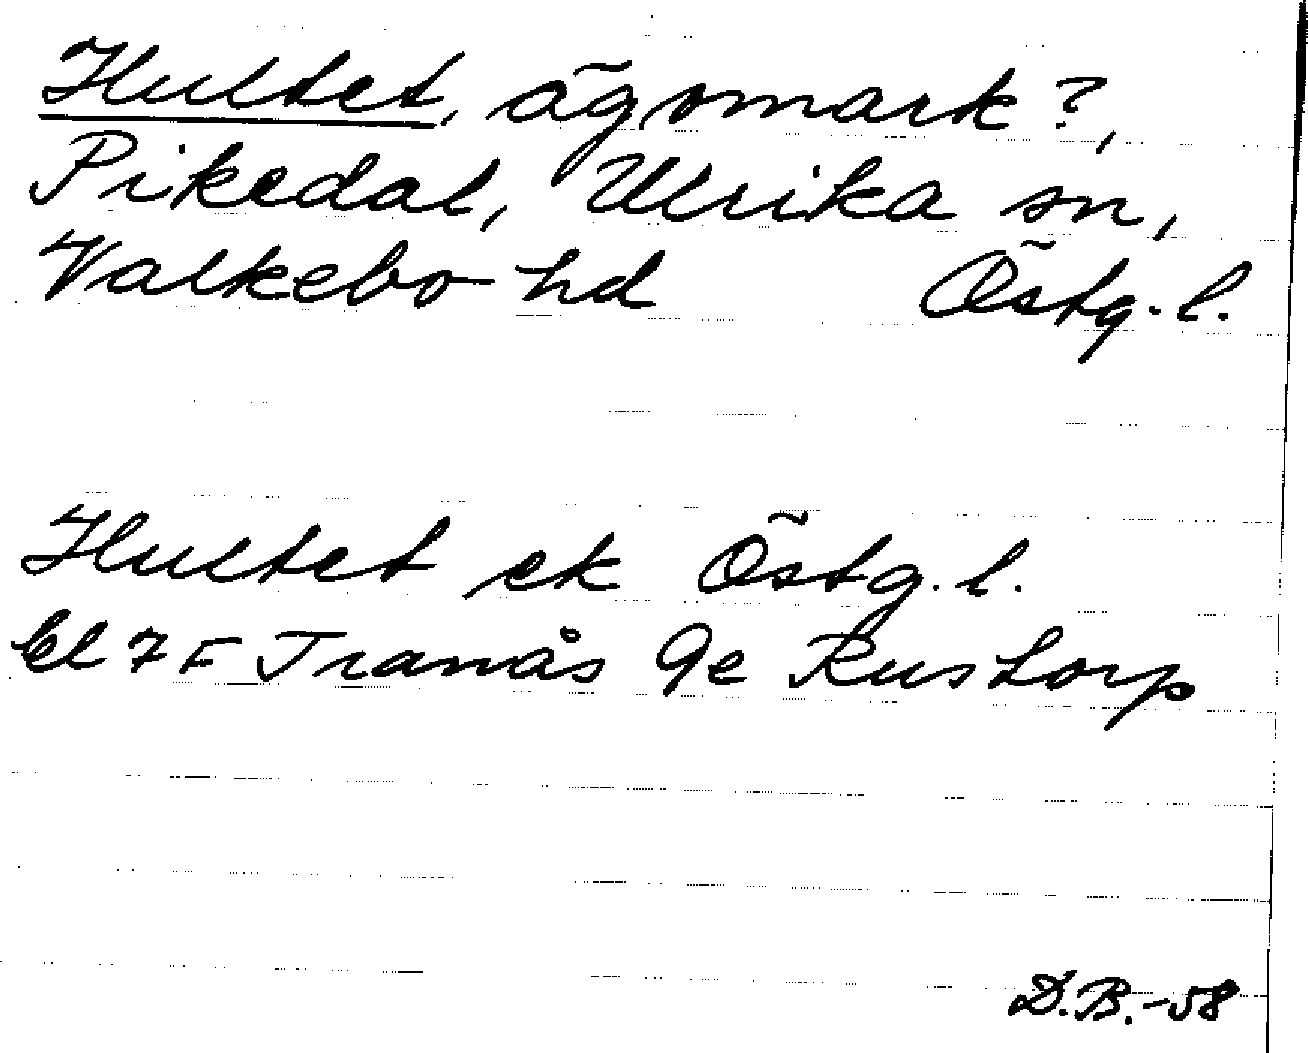 Hultet, ägomark?,
Pikedal, Ulrika sn,
Valkebo hd Östg. l.
Hultet ek Östg. l.
bl 7 F Tranås 9e Rustorp
D.B.-58